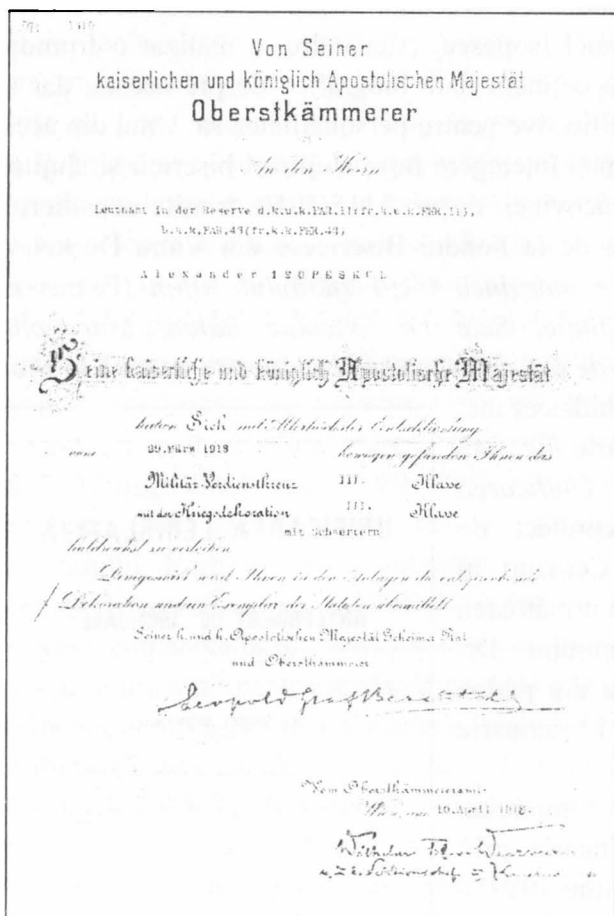 Von Seiner
kaiserlichen und königlich Apostolischen Majestät
Oberstkämmerer
An den Herrn
Leutnant in der Reserve d.k.u.k.FAR.
Alexander IZOPESKUL
Seine kaiserliche und königlich Apostolische Majestät
haben Sich mit Allerhöchster Entschließung
vom 29.März 1918 bewogen gefunden Ihnen das
Militär-Verdienstkreuz III. Klasse
mit der Kriegsdekoration III. Klasse
mit Schwertern
huldvollst zu verleihen
Demgemäß wird Ihnen in der Anlage die
Dekoration und ein Exemplar der Statuten übermittelt
Seiner k. und k. Apostolischen Majestät Geheimer Rat
und Oberstkämmerer
Leopold Graf
Vom Oberstkämmereramte
Wien, am 10.April 1918
Wilhelm